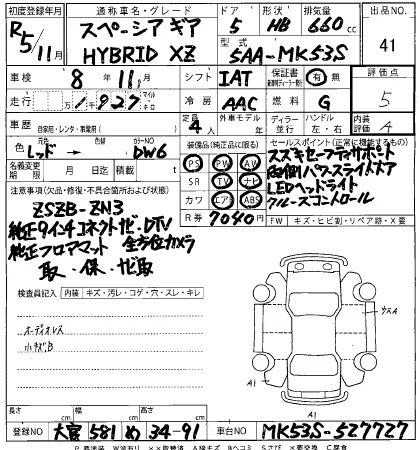 初度登録年月 通称車名・グレード ドア 形状 排気量 出品NO
R5/11月 スペーシア ギア HYBRID XZ 5 HB 660cc 41
型式 5AA-MK53S
車検 8年 11月 シフト IAT 保証書 有 無 評価点
走行 万 1927 マイル キロ 冷房 AAC 燃料 G 5
車歴 自家用・レンタ・事業用( ) 定員 4人 外車モデル年 ディーラー 並行 ハンドル 左・右 内装評価 4
色 元色 レッド→ 色替 カラーNO DW6
装備品(純正品に限る) セールスポイント(正常に機能するもの)
PS PW AV スズキセーフティサポート
名義変更期限 月 日迄 積算 SR TV ナビ 両側パワースライドドア
カワ エア ABS LEDヘッドライト
クルーズコントロール
注意事項(欠品・修復・不具合箇所および状態)
R券 7040円
FW キズ・ヒビ割・リペア跡・X要
ZSZB-ZN3
純正9インチコネクトナビ・DTV
純正フロアマット 全方位カメラ
取・保・ナビ取
検査員記入 内装 キズ・汚レ・コゲ・穴・スレ・キレ
オーディオレス
小キズB
ウスA
A1
A1
長さ cm 幅 cm 高さ cm
登録NO 大宮 581 め 34-91 車台NO MK53S-527727